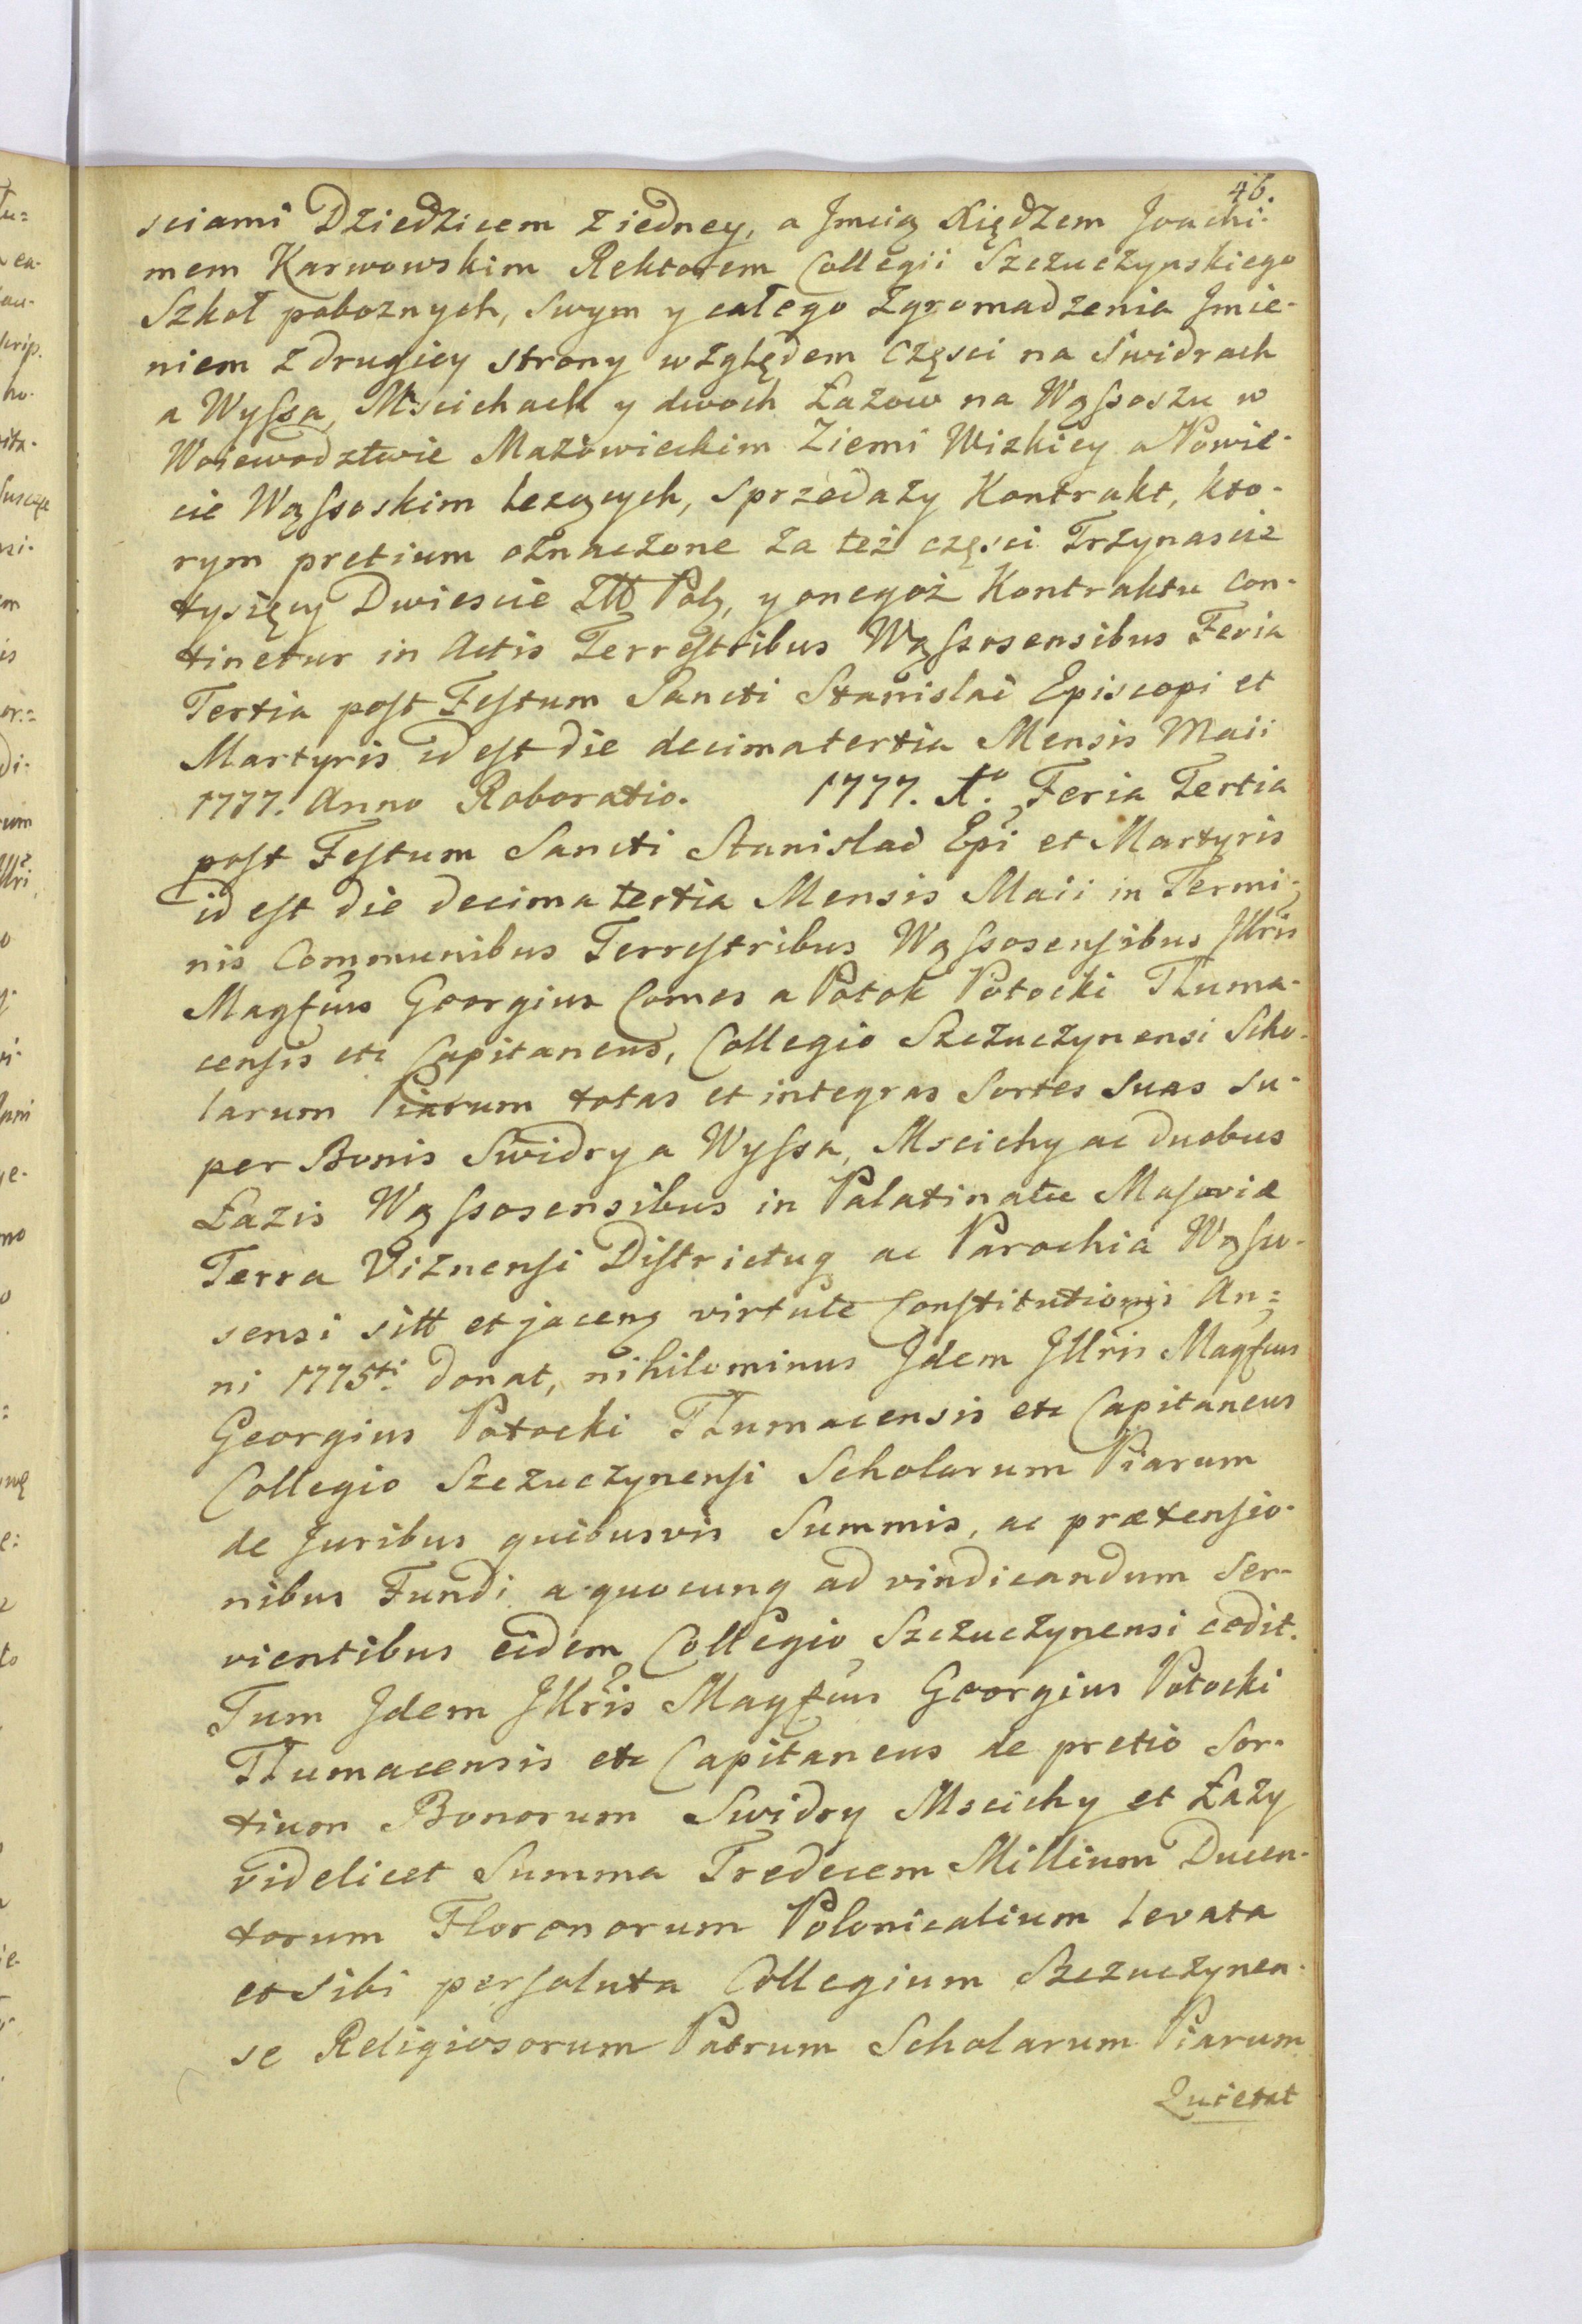 46.
sciami Dziedzicem z iedney, a Jmcią Xiędzem Joachi-
mem Karwowskim Rektorem Collegii Szczuczynskiego
Szkoł poboznych, Swym y całego Zgromadzenia Jmie-
niem z drugiey strony względem Częsci na Swidrach
a Wyssa, Mscichach y dwoch Łazow na Wąssoszu w
Woiewodztwie Mazowieckim Ziemi Wizkiey a Powie-
cie Wąssoskim lezących, Sprzedazy Kontrakt, kto-
rym pretium oznaczone za też częsci Trzynascie
tysięcy Dwiescie Złł Pol, y onegoż Kontraktu Con-
tinetur in Actis Terrestribus Wąssosensibus Feria
Tertia post Festum Sancti Stanislai Episcopi et
Martyris id est die decimatertia Mensis Maii
1777. Anno Roboratio. 1777. Ao. Feria Tertia
post Festum Sancti Stanislai Epi et Martyris
id est die decima tertia Mensis Maii in Termi-
nis Communibus Terrestribus Wąssosensibus Jllris
Magfcus Georgius Comes a Potok Potocki Tłuma-
censis etc Capitaneus, Collegio Szczuczynensi Scho-
larum Piarum totas et integras Sortes Suas Su-
per Bonis Swidry a Wyssa, Mscichy ac duobus
Łazis Wąssosensibus in Palatinatu Masoviæ
Terra Viznensi Districtuq ac Parochia Wąsso-
sensi sitt et jacenq virtute Constitutionis An=
ni 1775ti donat, nihilominus Jdem Jllris Magfcus
Georgius Potocki Tłumacensis etc Capitaneus
Collegio Szczuczynensi Scholarum Piarum
de Juribus quibusvis Summis, ac prætensio-
nibus Fundi a quocunq ad vindicandum Ser-
vientibus eidem Collegio Szczuczynensi cedit.
Tum Jdem Jllris Magfcus Georgius Potocki
Tłumacensis etc Capitaneus de pretio Sor-
tium Bonorum Swidry Mscichy et Łazy
videlicet Summa Tredecem Millium Ducen-
torum Florenorum Polonicalium levata
et Sibi persoluta Collegium Szczuczynen-
se Religiosorum Patrum Scholarum Piarum
Quietat